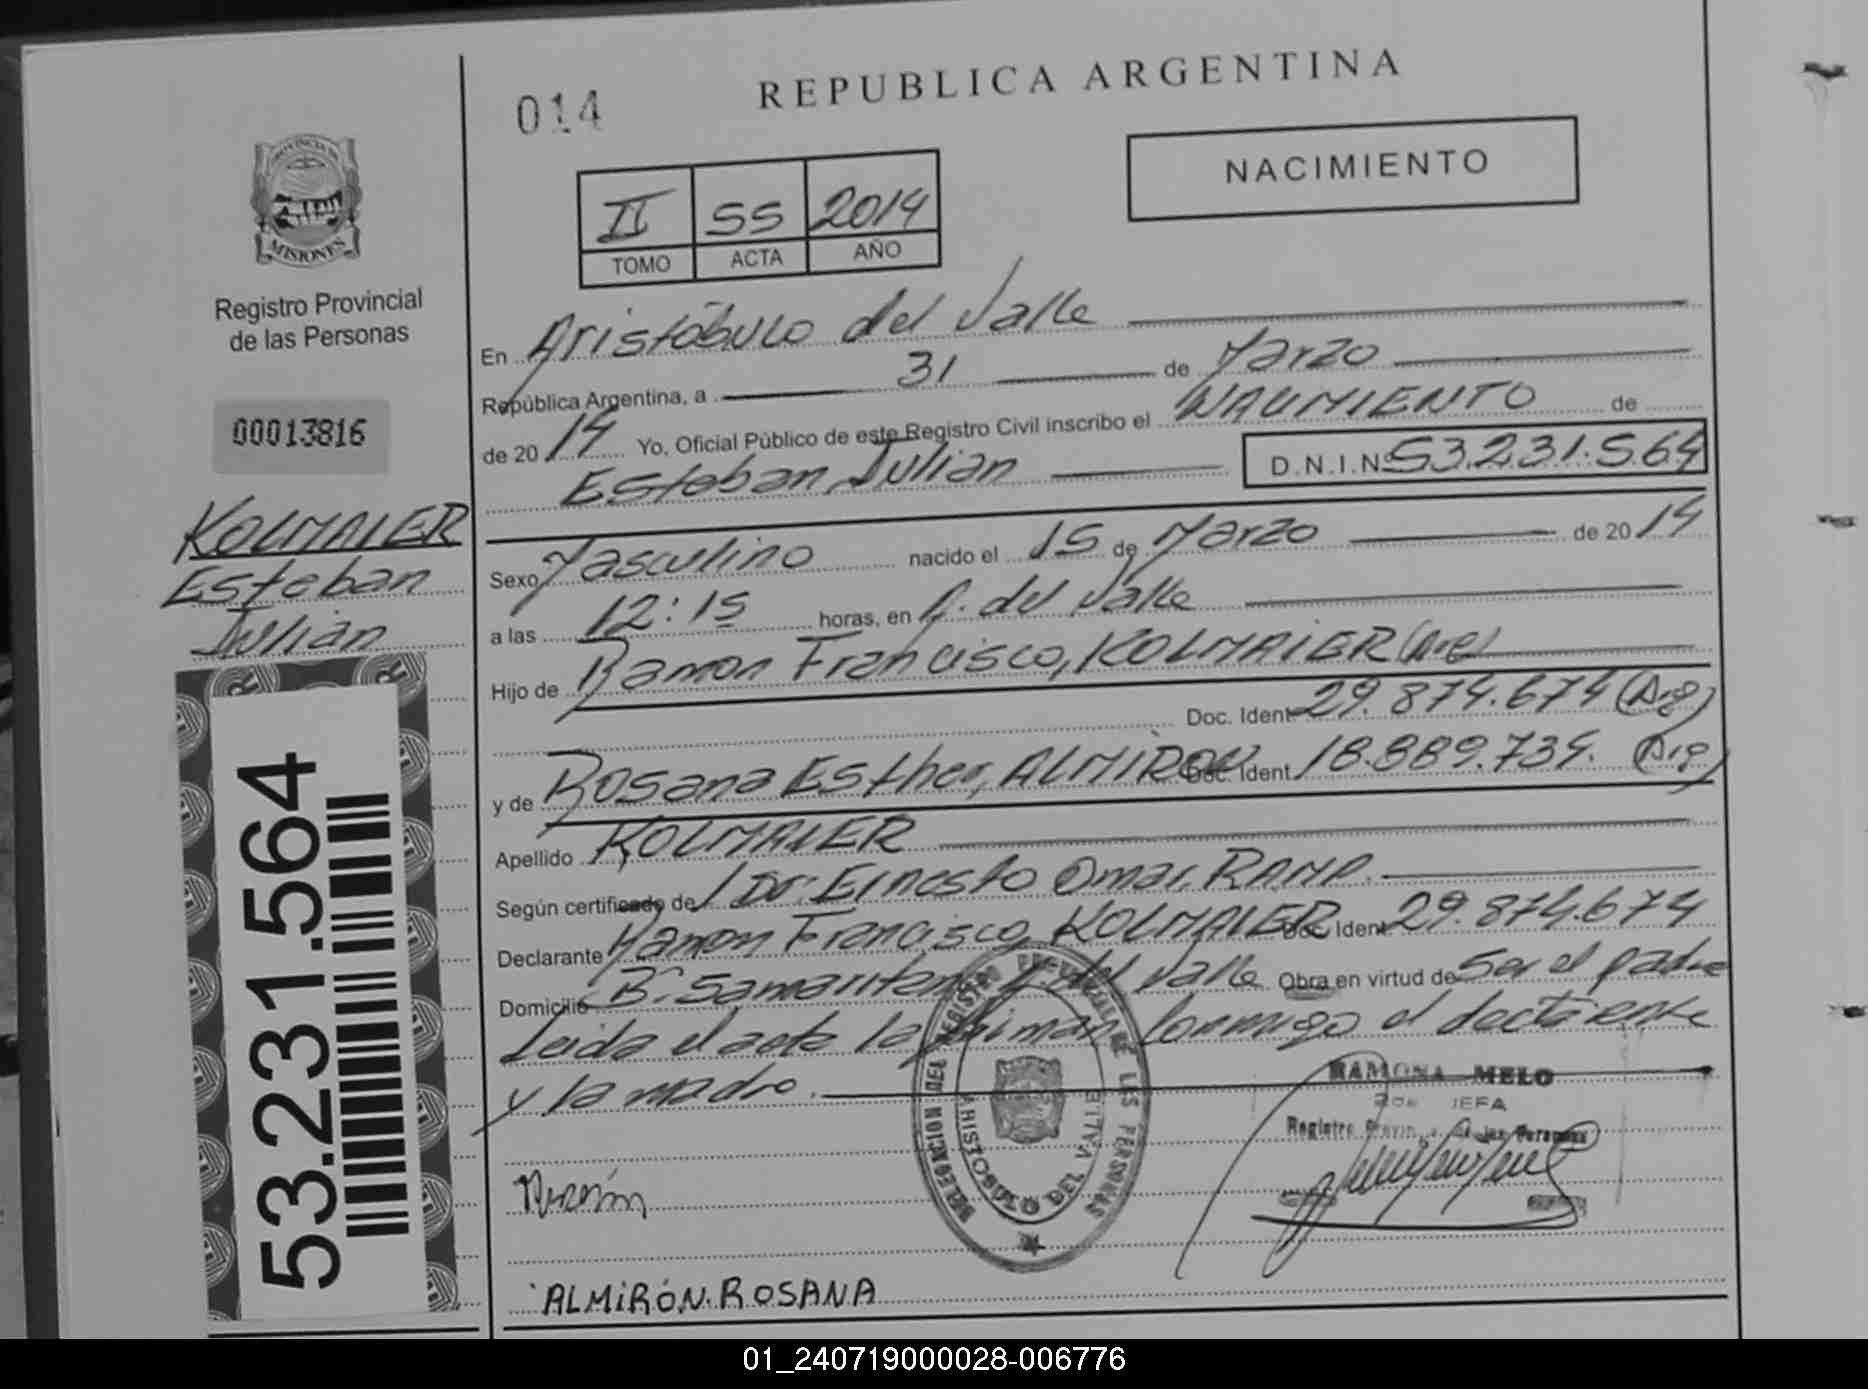 014
REPUBLICA ARGENTINA
NACIMIENTO
II 55 2014
TOMO ACTA AÑO
PROVINCIA DE
MISIONES
Registro Provincial
de las Personas
00013816
KOLMAIER
Esteban
Julián
53.231.564
En Aristóbulo del Valle
República Argentina, a 31 de Marzo
de 2014 Yo, Oficial Público de este Registro Civil inscribo el NACIMIENTO de
Esteban Julián D.N.I.Nº 53.231.564
Sexo Masculino nacido el 15 de Marzo de 2014
a las 12:15 horas, en A. del Valle
Hijo de Ramon Francisco, KOLMAIER
Doc. Ident 29.874.674 (Arg)
y de Rosana Esther, ALMIRÓN Doc. Ident 18.889.735. (Arg)
Apellido KOLMAIER
Según certificado de Dr. Ernesto Omar, RAMA.
Declarante Ramon Francisco, KOLMAIER Doc. Ident 29.874.674
Domicilio Bº Samaritano A. del Valle Obra en virtud de Ser el padre
Leida el acta la firman conmigo el declarante
y la madre.
RAMONA MELO
JEFA
Registro Provin. de las Personas
DELEGACION DEL REGISTRO PROVINCIAL DE LAS PERSONAS
ARISTOBULO DEL VALLE
ALMIRÓN. ROSANA
01_240719000028-006776